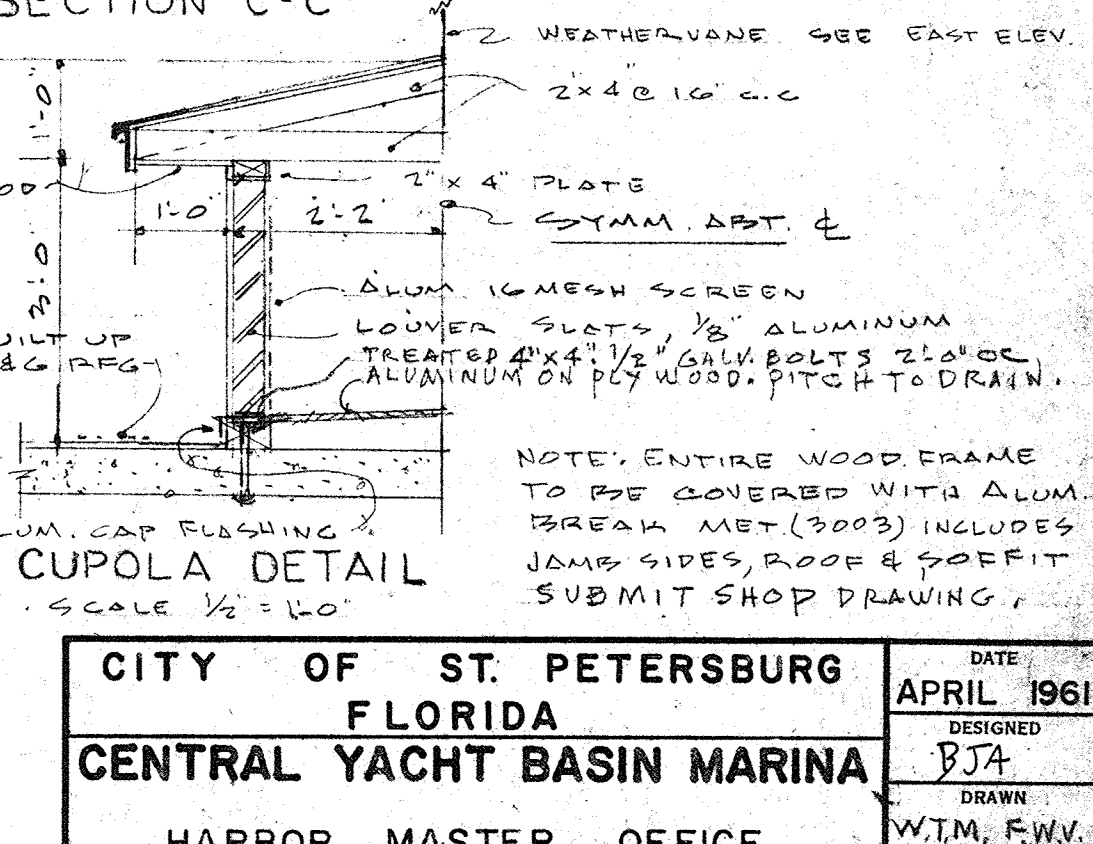 SECTION C-C
WEATHERVANE SEE EAST ELEV.
2"x4"@ 16" C.C
1'-0"
2" x 4" PLATE
1'-0"
2'-2"
SYMM. ABT. ℄
3'-0"
ALUM 16 MESH SCREEN
LOUVER SLATS, 1/8" ALUMINUM
TREATED 4"x4". 1/2" GALV. BOLTS 2'-0" OC,
ALUMINUM ON PLY WOOD. PITCH TO DRAIN.
UILT UP
&G RFG
NOTE: ENTIRE WOOD FRAME
TO BE COVERED WITH ALUM.
BREAK MET. (3003) INCLUDES
JAMB SIDES, ROOF & SOFFIT
SUBMIT SHOP DRAWING.
LUM. CAP FLASHING
CUPOLA DETAIL
SCALE 1/2" = 1'-0"
CITY OF ST. PETERSBURG
FLORIDA
CENTRAL YACHT BASIN MARINA
HARBOR MASTER OFFICE
DATE
APRIL 1961
DESIGNED
BJA
DRAWN
W.T.M. F.W.V.